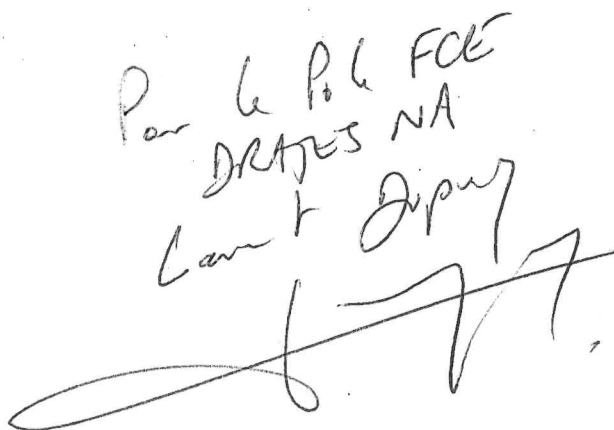 Pour le Pole FCE
DRAJES NA
Laurent Dupuy